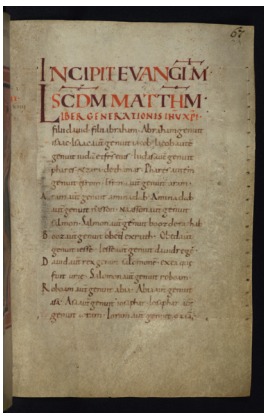 67
INCIPIT EVANGĪM
S̄C̄D̄M MATTHM
LIBER GENERATIONIS IHU XPI
filii dauid filii abraham Abraham genuit
isaac Isaac aut genuit iacob Iacob aut
genuit iudā et frēs eius Iudas aut genuit
phares et zara de thamar Phares aut
genuit esrom Esrom aut genuit aram
Aram aut genuit aminadab Aminadab
aut genuit naasson Naasson aut genuit
salmon Salmon aut genuit booz de rachab
Booz aut genuit obeth ex ruth Obeth aut
genuit iesse Iesse aut genuit dauid regē
Dauid aut rex genuit salomonē ex ea que
fuit urie Salomon aut genuit roboam
Roboam aut genuit abia Abia aut genuit
asa Asa aut genuit iosaphat Iosaphat aut
genuit ioram Ioram aut genuit oziā